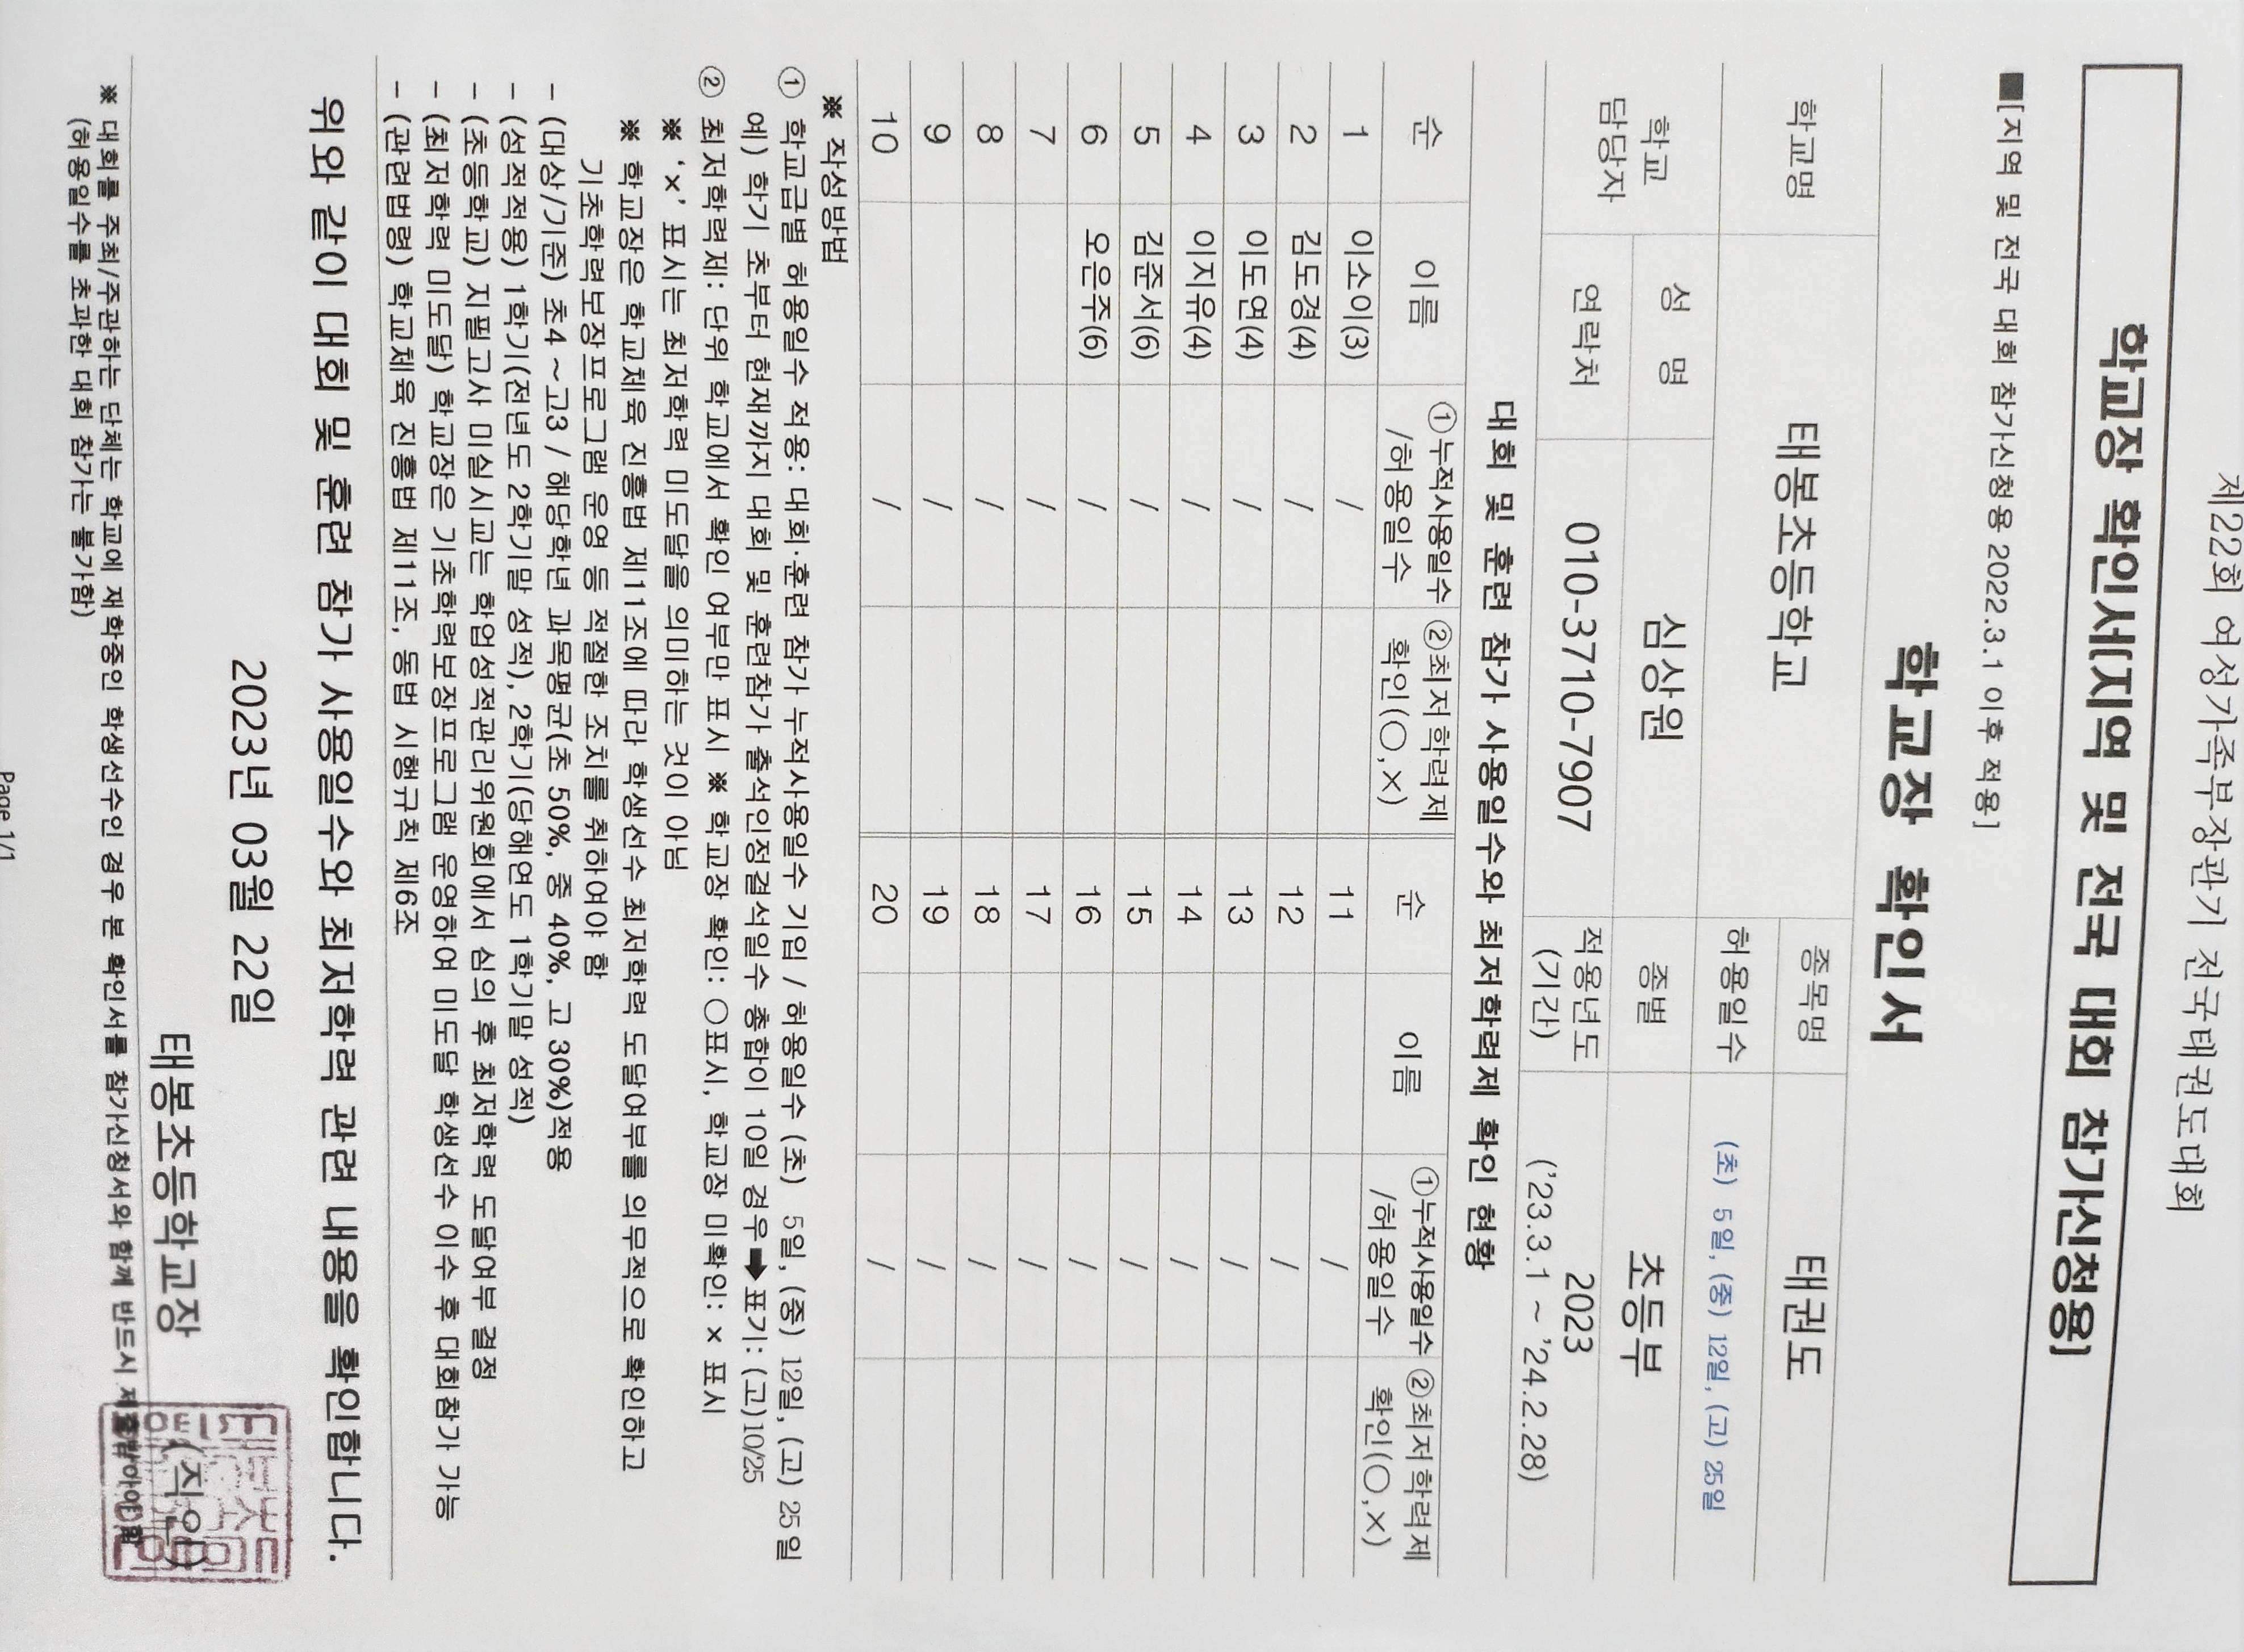 제22회 여성가족부장관기 전국태권도대회
학교장 확인서(지역 및 전국 대회 참가신청용)
■[지역 및 전국 대회 참가신청용 2022.3.1 이후 적용]
학교장 확인서
학교명 태봉초등학교 종목명 태권도
허용일수 (초) 5일, (중) 12일, (고) 25일
학교 담당자 성 명 심상원 종별 초등부
연락처 010-3710-7907 적용년도 (기간) 2023
('23.3.1 ~ '24.2.28)
대회 및 훈련 참가 사용일수와 최저학력제 확인 현황
순 이름 ①누적사용일수 /허용일수 ②최저학력제 확인(○,×) 순 이름 ①누적사용일수 /허용일수 ②최저학력제 확인(○,×)
1 이소이(3) / 11 /
2 김도경(4) / 12 /
3 이도연(4) / 13 /
4 이지유(4) / 14 /
5 김준서(6) / 15 /
6 오은주(6) / 16 /
7 / 17 /
8 / 18 /
9 / 19 /
10 / 20 /
※ 작성방법
① 학교급별 허용일수 적용: 대회·훈련 참가 누적사용일수 기입 / 허용일수 (초) 5일, (중) 12일, (고) 25일
예) 학기 초부터 현재까지 대회 및 훈련참가 출석인정결석일수 총합이 10일 경우➡표기: (고)10/25
② 최저학력제: 단위 학교에서 확인 여부만 표시 ※ 학교장 확인: ○표시, 학교장 미확인: × 표시
※ '×' 표시는 최저학력 미도달을 의미하는 것이 아님
※ 학교장은 학교체육 진흥법 제11조에 따라 학생선수 최저학력 도달여부를 의무적으로 확인하고
기초학력보장프로그램 운영 등 적절한 조치를 취하여야 함
- (대상/기준) 초4 ~고3 / 해당학년 과목평균(초 50%, 중 40%, 고 30%)적용
- (성적적용) 1학기(전년도 2학기말 성적), 2학기(당해연도 1학기말 성적)
- (초등학교) 지필고사 미실시교는 학업성적관리위원회에서 심의 후 최저학력 도달여부 결정
- (최저학력 미도달) 학교장은 기초학력보장프로그램 운영하여 미도달 학생선수 이수 후 대회참가 가능
- (관련법령) 학교체육 진흥법 제11조, 동법 시행규칙 제6조
위와 같이 대회 및 훈련 참가 사용일수와 최저학력 관련 내용을 확인합니다.
2023년 03월 22일
태봉초등학교장 (직인)
※ 대회를 주최/주관하는 단체는 학교에 재학중인 학생선수인 경우 본 확인서를 참가신청서와 함께 반드시 제출받아야 함
(허용일수를 초과한 대회 참가는 불가함)
Page 1/1